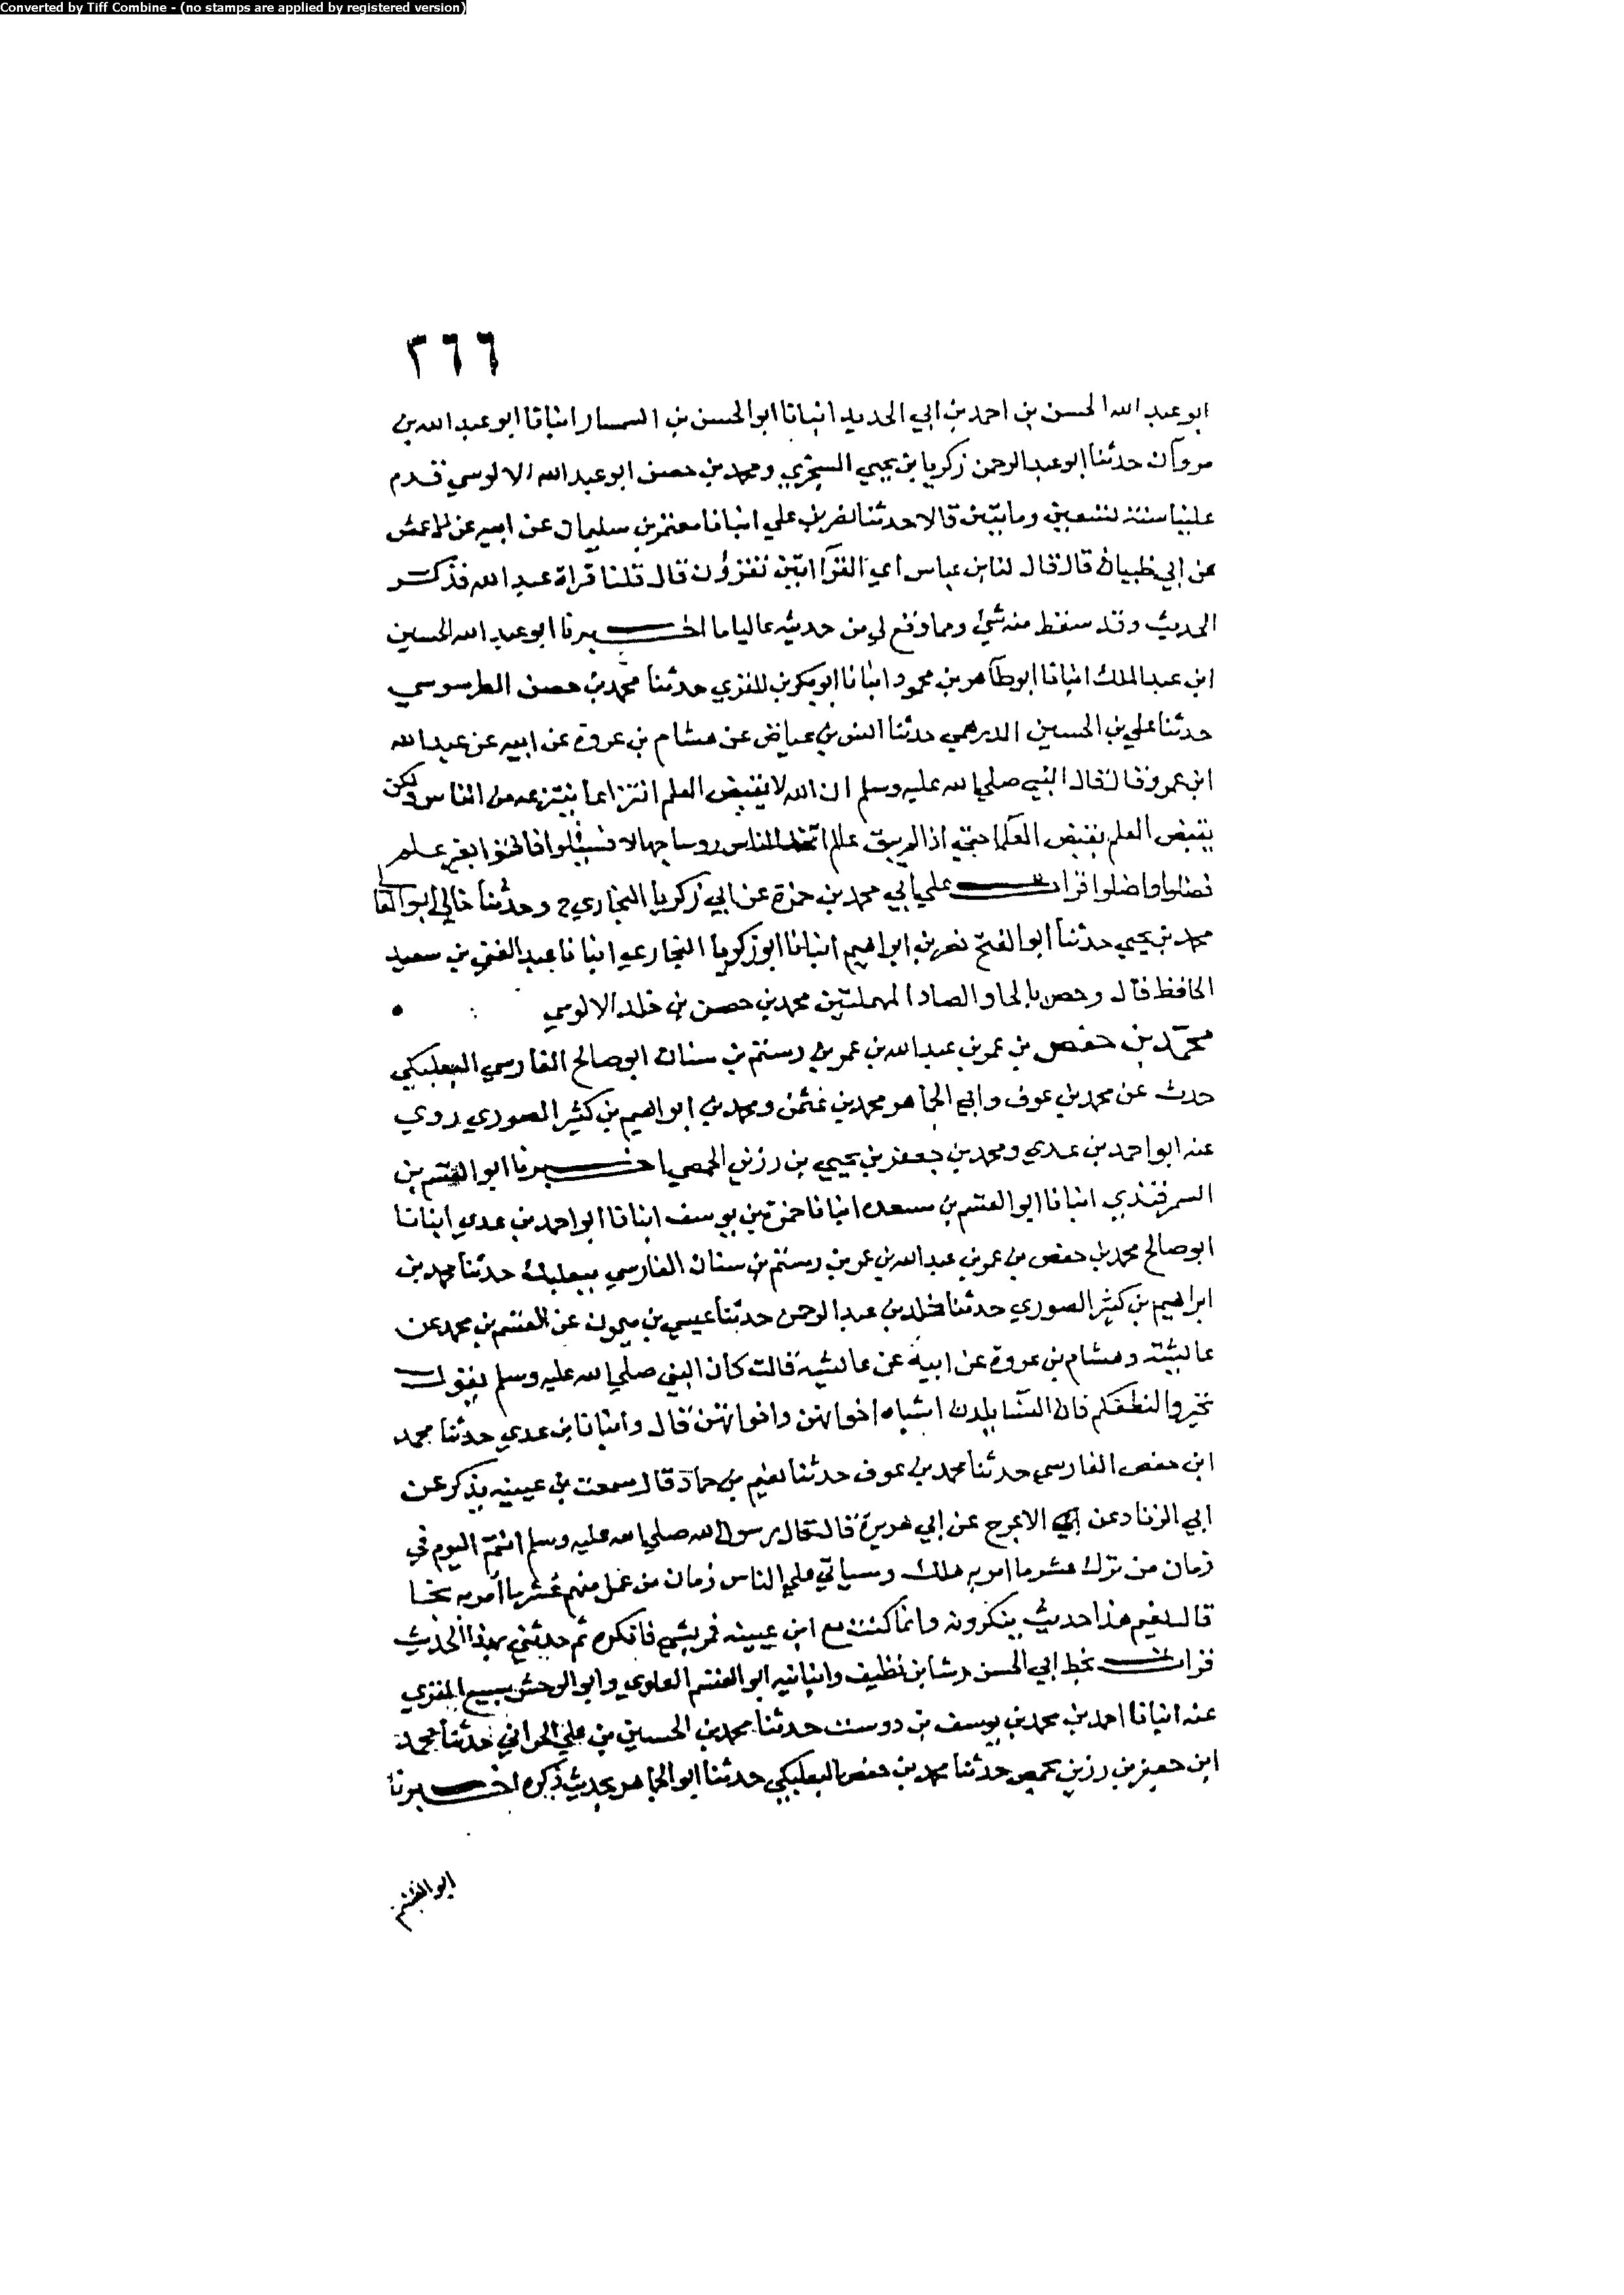 Converted by Tiff Combine - (no stamps are applied by registered version)
٢٦٦
ابو عبد الله الحسن بن احمد بن ابي الحديد انبانا ابو الحسن بن السمسار انبانا ابو عبد الله بن
مروان حدثنا ابو عبد الرحمن زكريا بن يحيي السجزي ومحمد بن حصن ابو عبد الله الالوسي قدم
علينا سنة تسعين ومايتين قالا حدثنا نصر بن علي انبانا معتمر بن سليمان عن ابيه عن الاعمش
عن ابي ظبيان قال قال لنا ابن عباس اي القراتين تقرؤن قال قلنا قراة عبد الله فذكر
الحديث وقد سقط منه شئ ومما وقع لي من حديثه عاليا ما اخبرنا ابو عبد الله الحسين
ابن عبد الملك انبانا ابو طاهر بن محمود انبانا ابو بكر بن المقري حدثنا محمد بن حصن الطرسوسي
حدثنا علي بن الحسين الدرهمي حدثنا انس بن عياض عن هشام بن عروة عن ابيه عن عبد الله
ابن عمرو قال قال النبي صلي الله عليه وسلم ان الله لا يقبض العلم انتزاعا ينتزعه من الناس ولكن
يقبض العلم بقبض العلما حتي اذا لم يبق عالم اتخذ الناس روسا جهالا فسيلوا فافتوا بغير علم
فضلوا واضلوا قرات علي ابي محمد بن حمزة عن ابي زكريا البخاري ح وحدثنا خالي ابو المعالي
محمد بن يحيي حدثنا ابو الفتح نصر بن ابراهيم انبانا ابو زكريا البخاري انبانا عبد الغني بن سعيد
الحافظ قال وحصن بالحا والصاد المهملتين محمد بن حصن بن خلد الالوسي
محمد بن حفص بن عمر بن عبد الله بن عمر بن رستم بن سنان ابو صالح الفارسي البعلبكي
حدث عن محمد بن عوف وابي الجماهر محمد بن عثمن ومحمد بن ابراهيم بن كثير الصوري روي
عنه ابو احمد بن عدي ومحمد بن جعفر بن يحيي بن رزين الحمصي اخبرنا ابو القسم بن
السمرقندي انبانا ابو القسم بن مسعده انبانا حمزة بن يوسف انبانا ابو احمد بن عدي انبانا
ابو صالح محمد بن حفص بن عمر بن عبد الله بن عمر بن رستم بن سنان الفارسي ببعلبك حدثنا محمد بن
ابراهيم بن كثير الصوري حدثنا خلد بن عبد الرحمن حدثنا عيسي بن ميمون عن القسم بن محمد عن
عائشة وهشام بن عروة عن ابيه عن عائشة قالت كان النبي صلي الله عليه وسلم يقول
تخيروا لنطفكم فان النسا يلدن اشباه اخوانهن واخواتهن قال وانبانا ابن عدي حدثنا محمد
ابن حفص الفارسي حدثنا محمد بن عوف حدثنا نعيم بن حماد قال سمعت بن عيينه يذكر عن
ابي الزناد عن الاعرج عن ابي هريرة قال قال رسول الله صلي الله عليه وسلم انتم اليوم في
زمان من ترك عشر ما امر به هلك وسياتي علي الناس زمان من عمل منهم عشر ما امر به نجا
قال نعيم هذا حديث ينكرونه وانما كنت مع ابن عيينه فمر بشي فانكره ثم حدثني بهذا الحديث
قرات بخط ابي الحسن رشا بن نظيف وانبانيه ابو القسم العلوي وابو الوحش سبيع المقري
عنه انبانا احمد بن محمد بن يوسف بن دوست حدثنا محمد بن الحسين بن علي الحراني حدثنا محمد
ابن جعفر بن رزين بحمص حدثنا محمد بن حفص البعلبكي حدثنا ابو الجماهر بحديث ذكره اخبرنا
ابو القسم